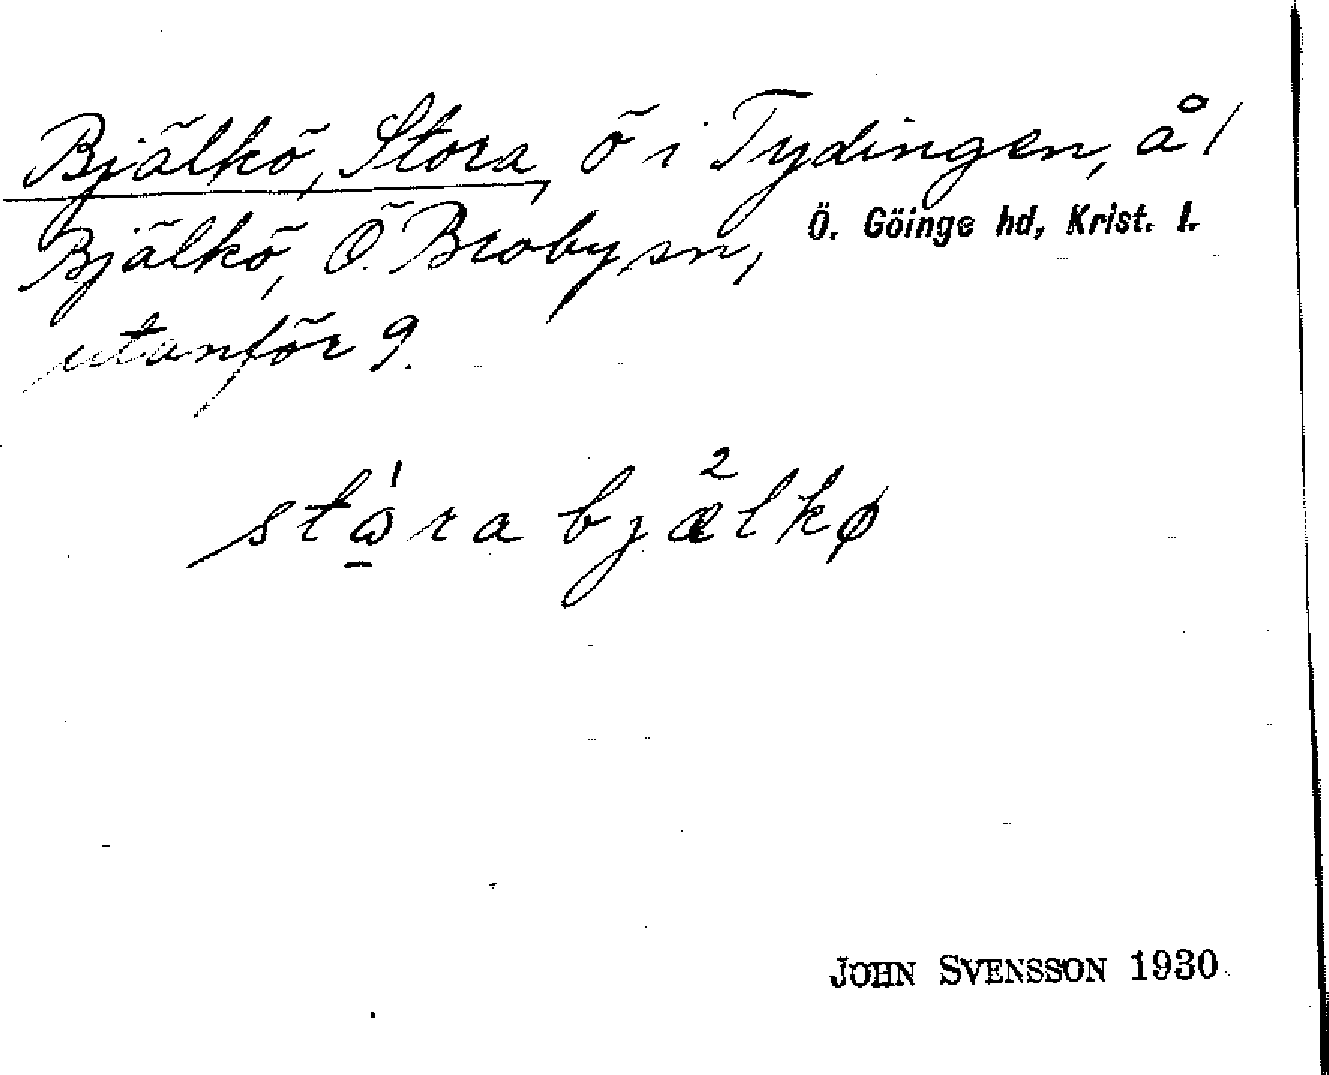 Bjälkö, Stora, ö i Tydingen, å 1
Bjälkö, Ö. Broby sn, Ö. Göinge hd, Krist. l.
utanför 9.
stɷ̠́ra bjæ̀lkø
JOHN SVENSSON 1930